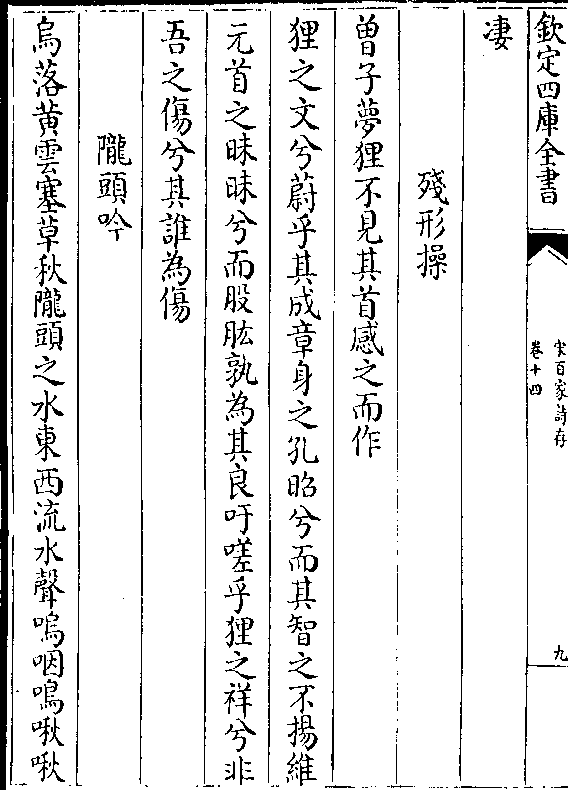 欽定四庫全書
宋百家詩存
卷十四
九
凄
殘形操
曽子夢狸不見其首感之而作
狸之文兮蔚乎其成章身之孔昭兮而其智之不揚維
元首之昧昧兮而股肱孰為其良吁嗟乎狸之祥兮非
吾之傷兮其誰為傷
隴頭吟
烏落黄雲塞草秋隴頭之水東西流水聲嗚咽鳴啾啾